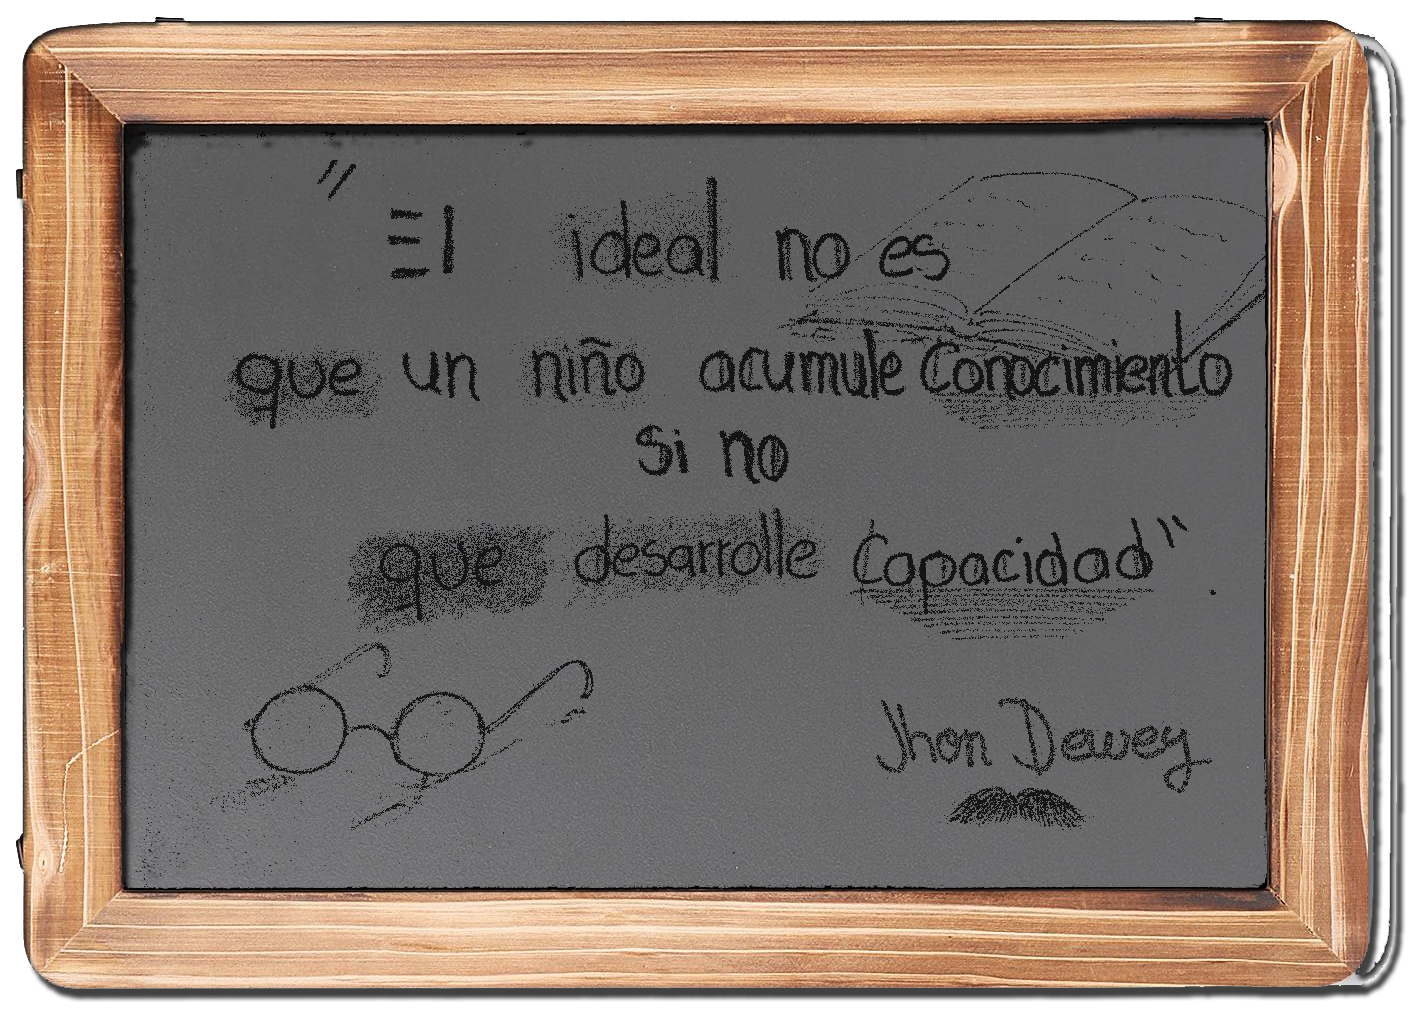 "El ideal no es
que un niño acumule Conocimiento
si no
que desarrolle Capacidad".
Jhon Dewey